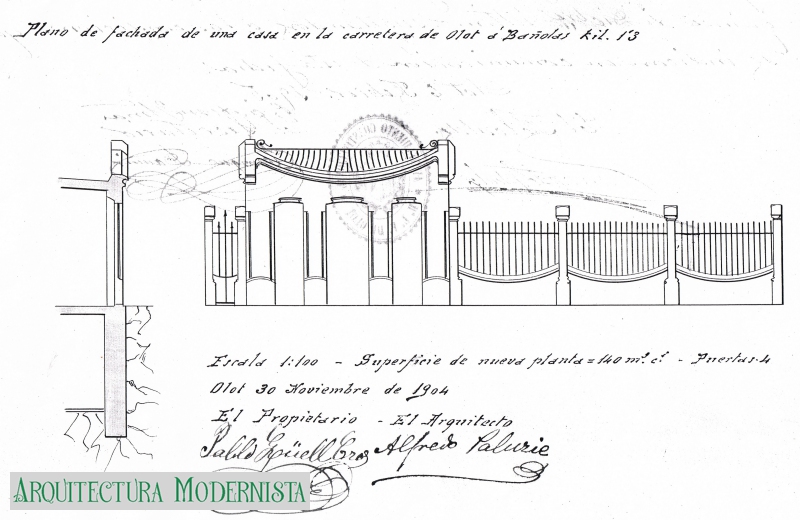 Plano de fachada de una casa en la carretera de Olot á Bañolas kil. 1'3
Escala 1:100 - Superficie de nueva planta = 140 m². c². - Puertas-4
Olot 30 Noviembre de 1904
El Propietario - El Arquitecto
Pablo Güell Alfredo Paluzie
ARQUITECTURA MODERNISTA